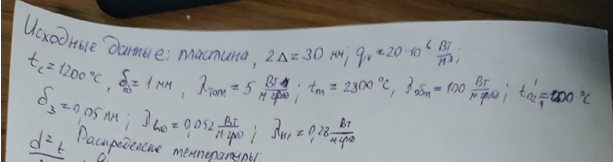 Исходные данные: пластина, 2Δ=30 мм; qᵥ=20·10⁶ Вт/м³;
t_c=1200°C, δ=1 мм, λ_топ=5 Вт/м·град; t_m=2300°C, λ_обл=100 Вт/м·град;
δ₃=0,05 мм; =0,052 Вт/м·град; λ_He=0,28 Вт/м·град
Распределение температуры:
d²t